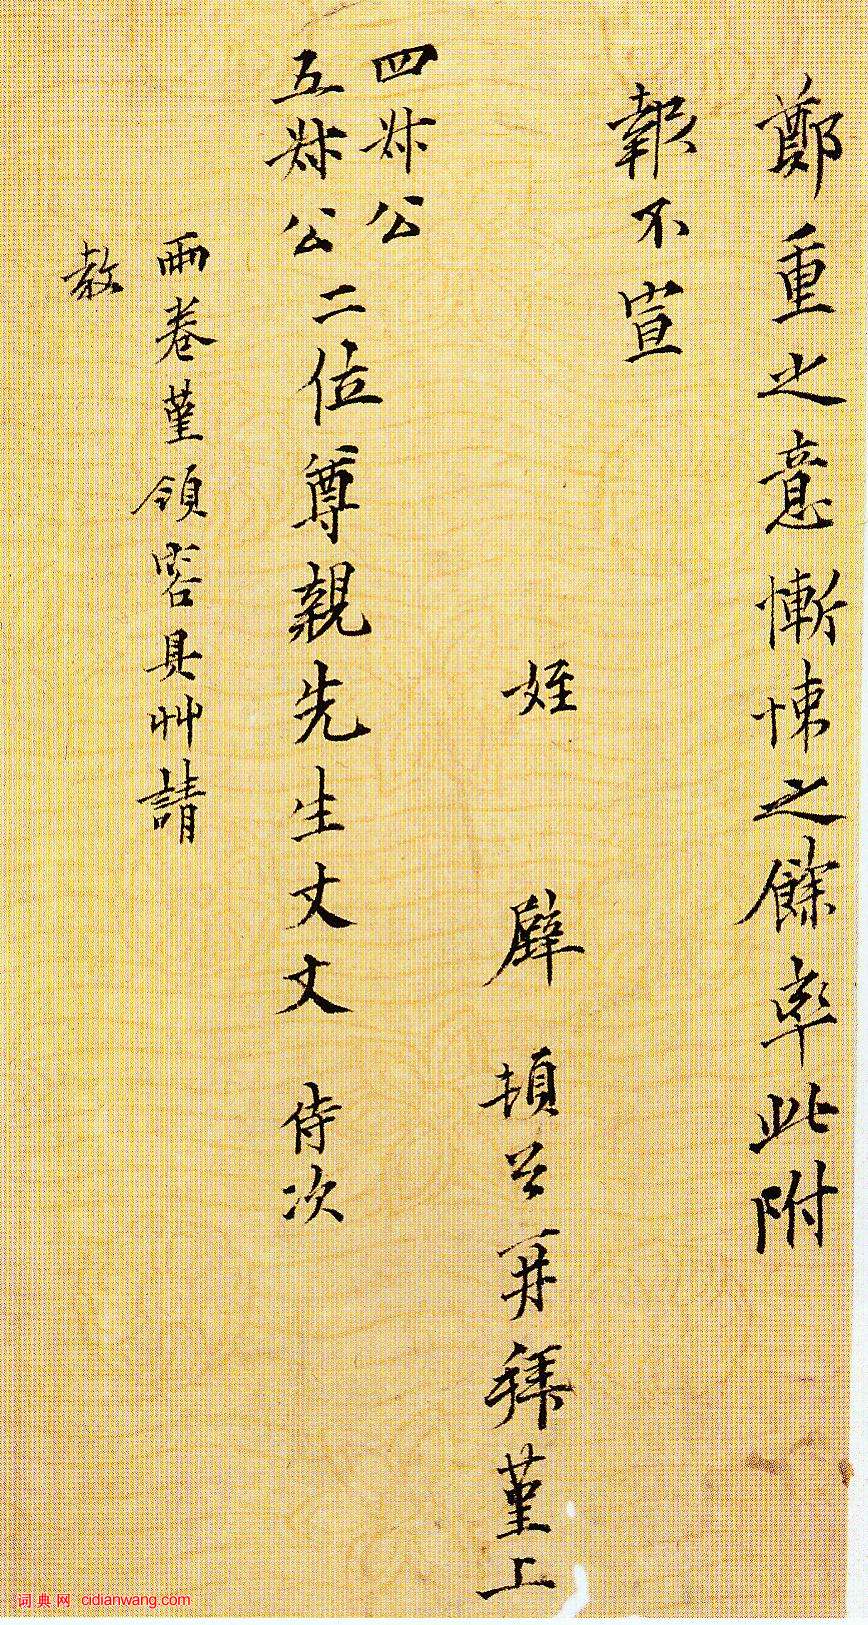 鄭重之意慚悚之餘率此附
報不宣
姪 璧 頓首再拜堇上
四叔公
五叔公二位尊親先生丈丈 侍次
兩卷堇領容具艸請
教
词典网 cidianwang.com